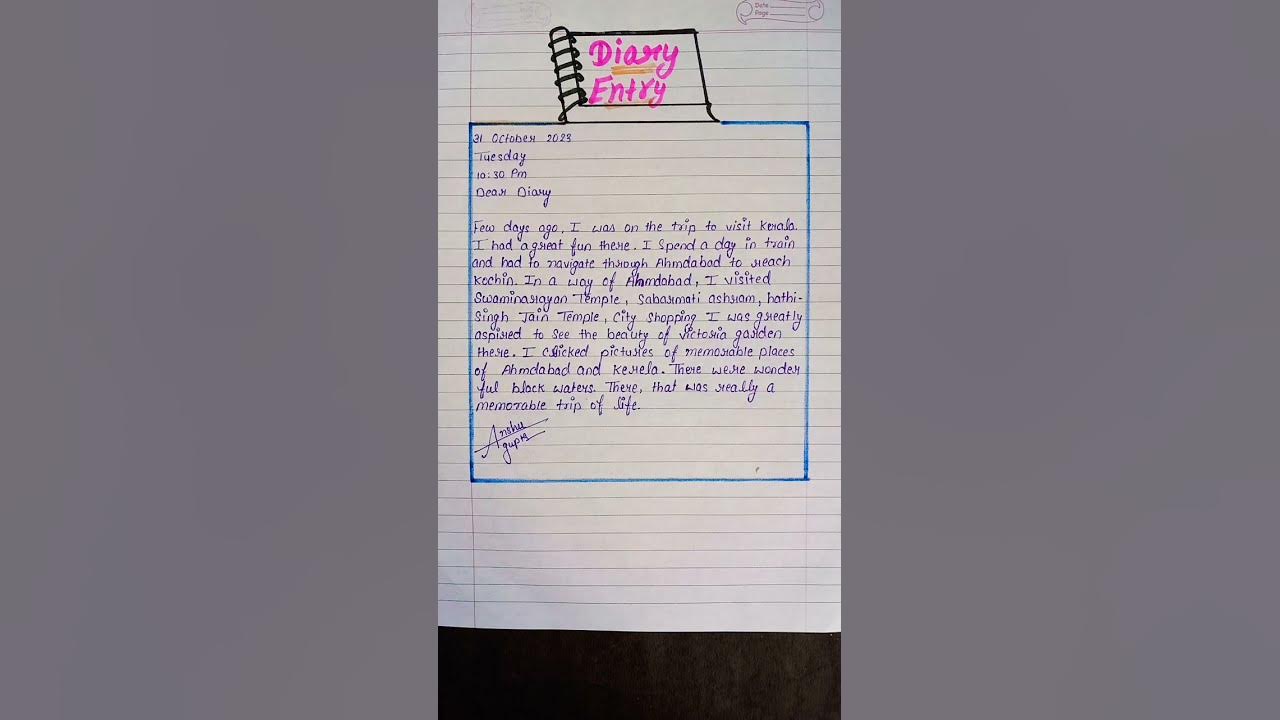 Date
Page
Diary
Entry
31 October 2023
Tuesday
10:30 Pm
Dear Diary
Few days ago, I was on the trip to visit Kerala.
I had a great fun there. I spend a day in train
and had to navigate through Ahmdabad to reach
Kochin. In a way of Ahmdabad, I visited
Swaminarayan Temple, Sabarmati ashram, hathi-
Singh Jain Temple, City Shopping I was greatly
aspired to see the beauty of victoria garden
there. I clicked pictures of memorable places
of Ahmdabad and Kerela. There were wonder
ful black waters. There, that was really a
memorable trip of life.
Anshu
gupta